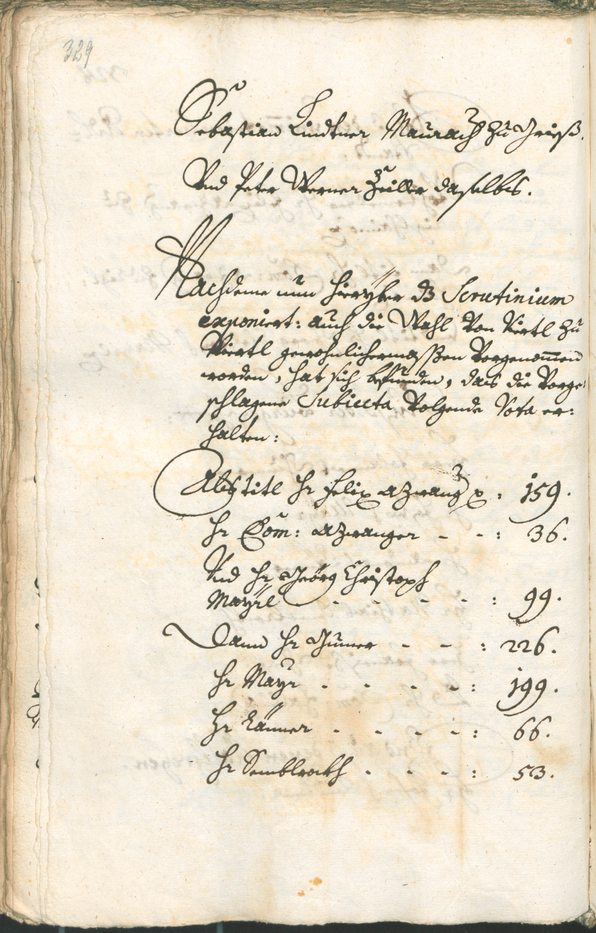 389
Sebastian Lindtner Maurach zu Grieß.
Und Peter Werner Zeiller daselbs.
Nachdeme nun hieryber dz Scrutinium
exponiert: auch die Wahl von Viertl zu
Viertl gewohnlichermassen vorgenomen
worden, hat sich befunden, dass die vorge¬
schlagene Subiecta volgende Vota er¬
halten:
titl hr Felix Azwang : 159.
hr Dom: Azwanger - - : 36.
Und hr Georg Christoph
Mayrl - - - - : 99.
Dann hr Gumer - - : 226.
hr Mayr - - - - : 199.
hr - - - - : 66.
hr - - - : 53.